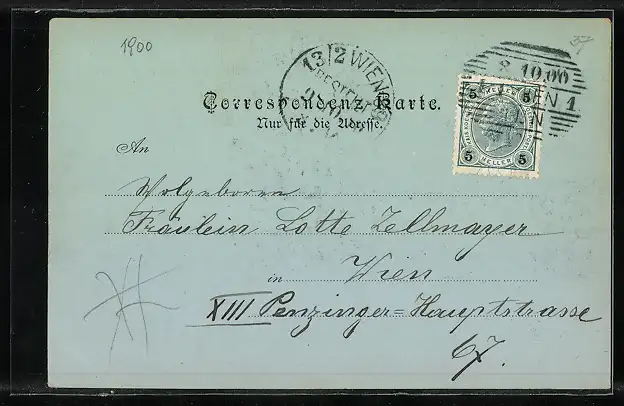 1900
13/2 WIEN
8 10 00
WIEN 1
5 5
5 HELLER 5
Correspondenz-Karte.
Nur für die Adresse.
An
Wolgeboren
Fräulein Lotte Zellmayer
in Wien
XIII Penzinger=Hauptstrasse
67.